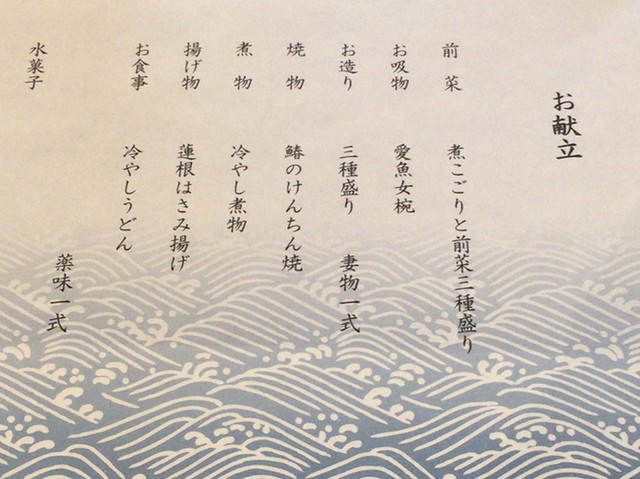 お献立
前菜 煮こごりと前菜三種盛り
お吸物 愛魚女椀
お造り 三種盛り 妻物一式
焼物 鰆のけんちん焼
煮物 冷やし煮物
揚げ物 蓮根はさみ揚げ
お食事 冷やしうどん
薬味一式
水菓子